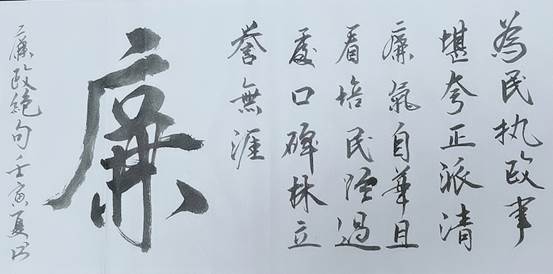 為民执政事
堪夸正派清
廉氣自華且
看培民經過
處口碑林立
譽無涯
廉
廉政絕句壬寅夏